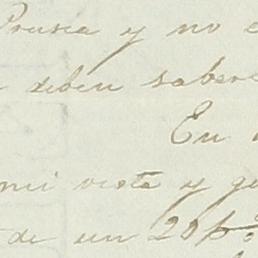 Prusia y no
deben saber
En
mi vista y
de un 20 p%